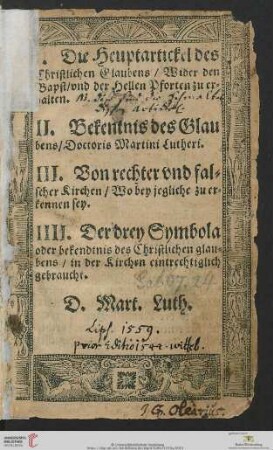 I. Die Heuptartickel des
Christlichen Glaubens / Wider den
Bapst / vnd der Hellen Pforten zu er-
halten.
II. Bekentnis des Glau
bens / Doctoris Martini Lutheri.
III. Von rechter vnd fal-
scher Kirchen / Wo bey jegliche zu er-
kennen sey.
IIII. Der drey Symbola
oder bekendtnis des Christlichen glau-
bens / in der Kirchen eintrechtiglich
gebraucht.
D. Mart. Luth.
Lips. 1559.
prior Editio 1544. witteb.
J. G. Olearius.